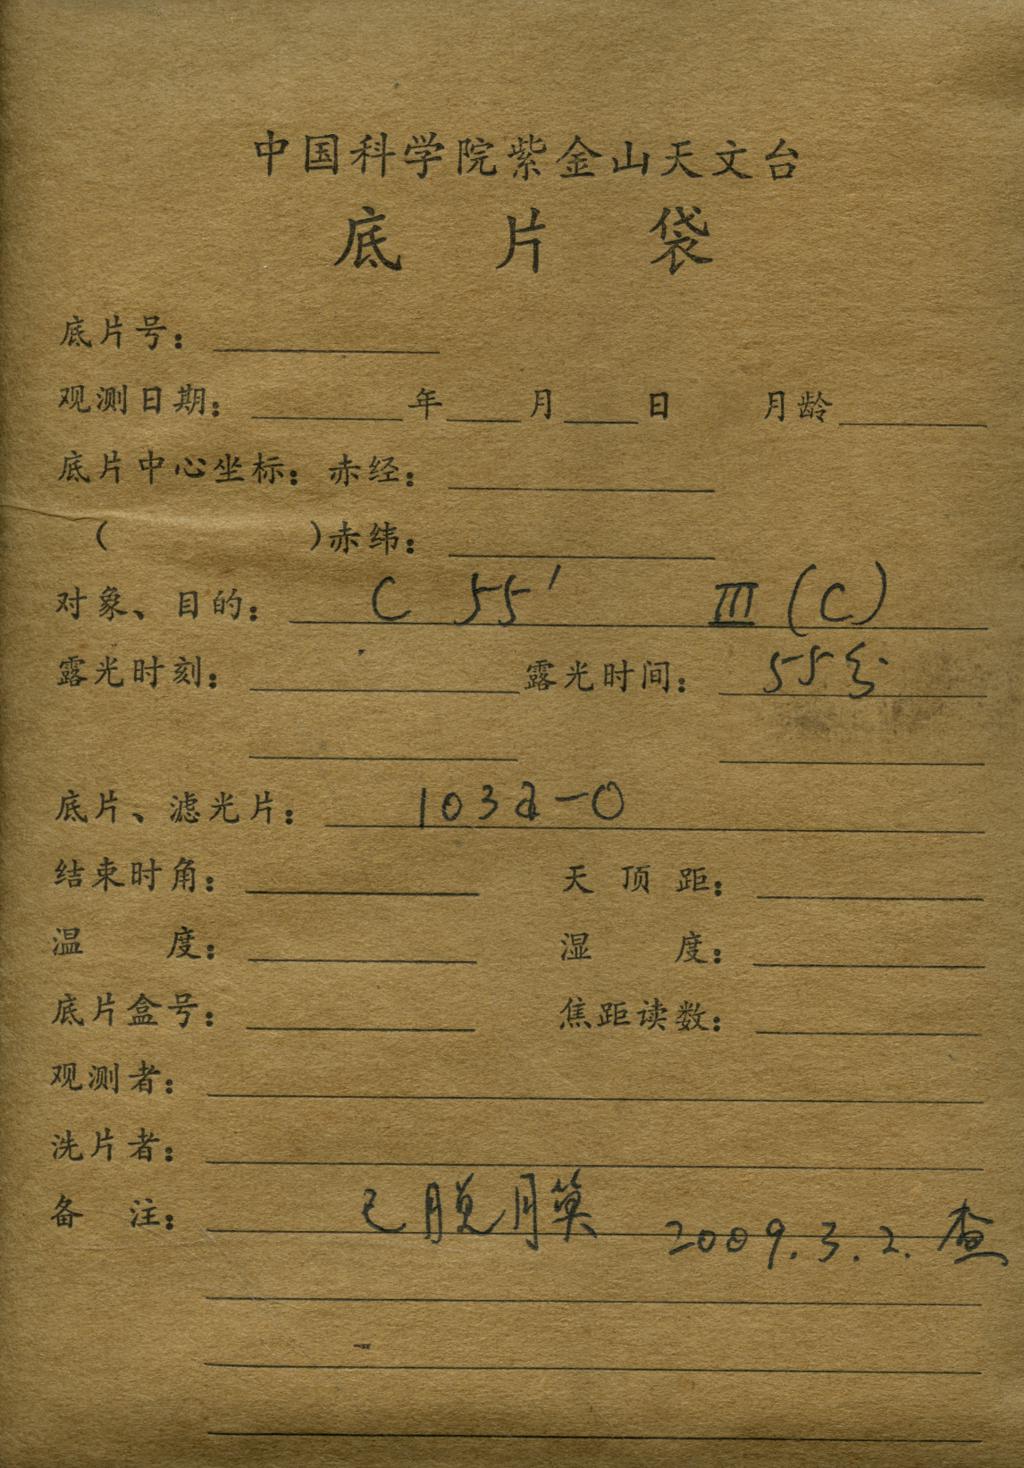 中国科学院紫金山天文台
底片袋
底片号:
观测日期: 年 月 日 月龄
底片中心坐标: 赤经:
( )赤纬:
对象、目的: C 55′ III (C)
露光时刻: 露光时间: 55分
底片、滤光片: 103a-O
结束时角: 天顶距:
温度: 湿度:
底片盒号: 焦距读数:
观测者:
洗片者:
备注: 已脱膜 2009.3.2.查